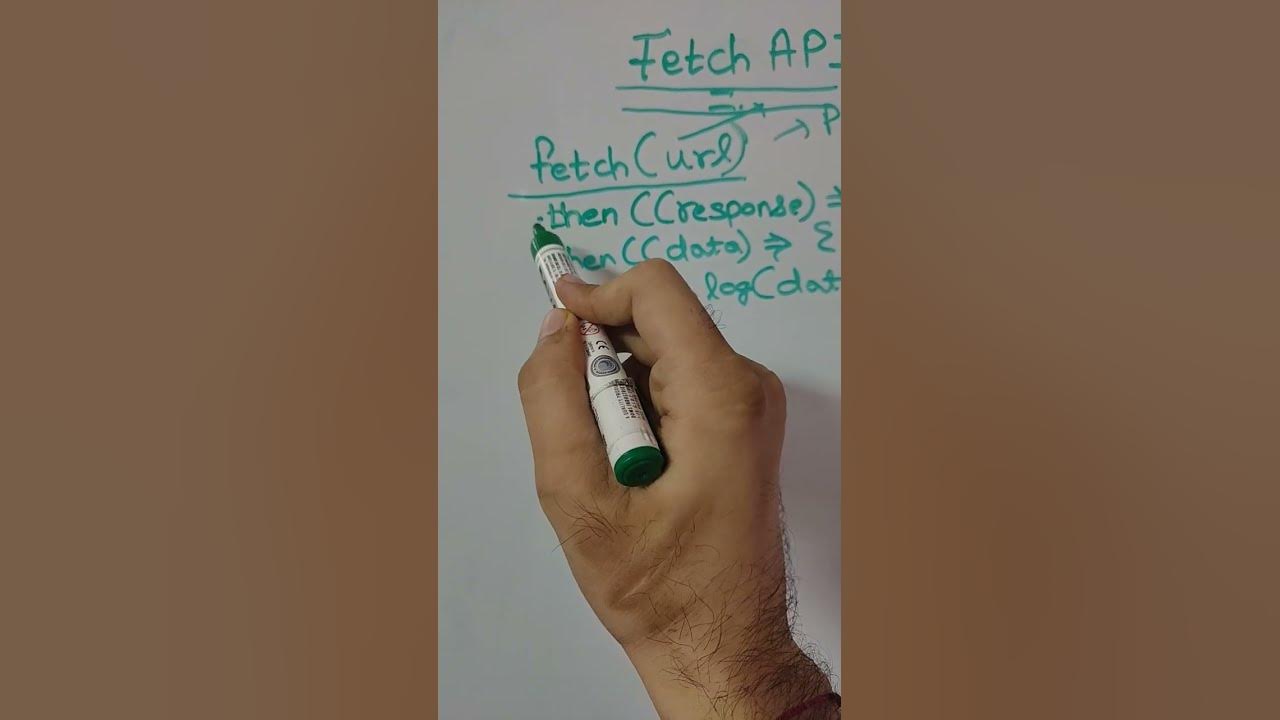 Fetch API
→ P
fetch(url)
.then ((response) ⇒
then((data) ⇒ {
log(dat
CE